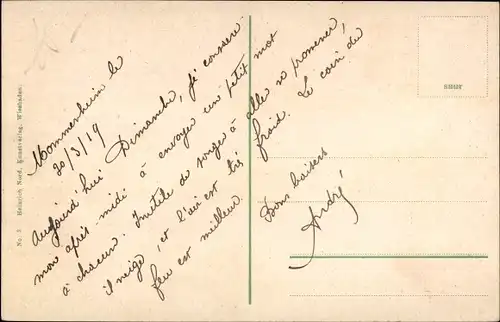 Mommenheim le
30/3/19
Aujourd'hui Dimanche, je consacre
mon après midi à envoyer un petit mot
à chacun. Inutile de songer à aller se promener,
il neige, et l'air est très froid. Le coin du
feu est meilleur.
Bons baisers
André
No. 3 Heinrich Nord, Kunstverlag, Wiesbaden.